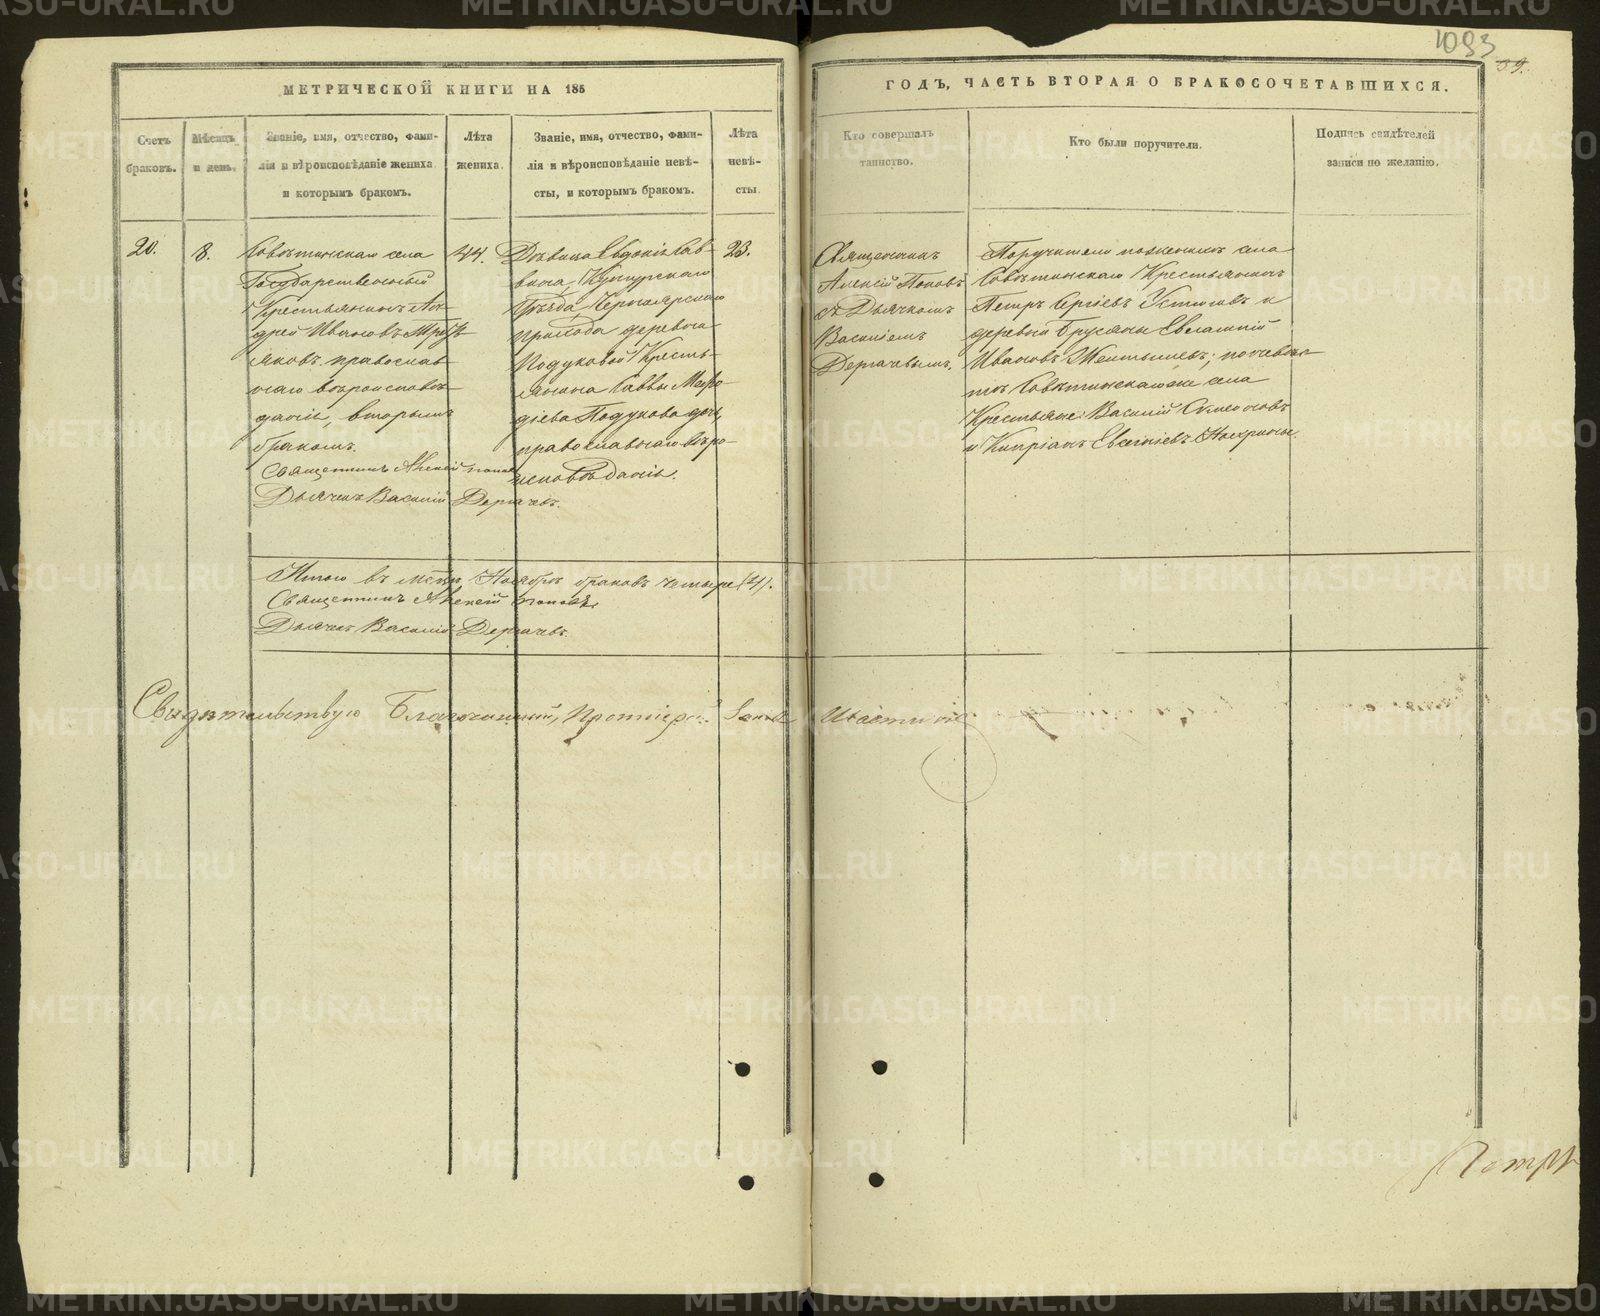 1093
39.
МЕТРИЧЕСКОЙ КНИГИ НА 185
ГОДЪ, ЧАСТЬ ВТОРАЯ О БРАКОСОЧЕТАВШИХСЯ.
Счетъ
браковъ.
Мѣсяцъ
и день.
Званіе, имя, отчество, фами-
лія и вѣроисповѣданіе жениха
и которымъ бракомъ.
Лѣта
жениха.
Званіе, имя, отчество, фами-
лія и вѣроисповѣданіе невѣ-
сты, и которымъ бракомъ.
Лѣта
невѣ-
сты.
Кто совершалъ
таинство.
Кто были поручители.
Подпись свидѣтелей
записи по желанію.
20.
8.
села
Государственный
Крестьянинъ Ан-
дрей Ивановъ
православ
наго вѣроисповѣ
данія, вторымъ
бракомъ.
Священникъ Алексій Поповъ
Дьячекъ Василій Дергачевъ.
44.
Дѣвица Евдокія Сав-
вина, Кунгурскаго
Уѣзда,
прихода деревни
Подуковой Кресть-
янина Саввы Мефо-
діева Подукова дочь,
православнаго вѣро-
исповѣданія.
23.
Священникъ
Алексій Поповъ
съ Дьячкомъ
Василіемъ
Дергачевымъ.
Поручители по женихѣ села
Крестьянинъ
Петръ Сергіевъ и
деревни Брусяны Евлампій
Ивановъ по невѣс-
тѣ села
Крестьяне: Василій
и Кипріанъ
Итого въ мцѣ Ноябрѣ браковъ четыре (4).
Священникъ Алексій Поповъ
Дьячекъ Василій Дергачевъ.
Свидѣтельствую Благочинный, Протоіерей
Петръ
METRIKI.GASO-URAL.RU